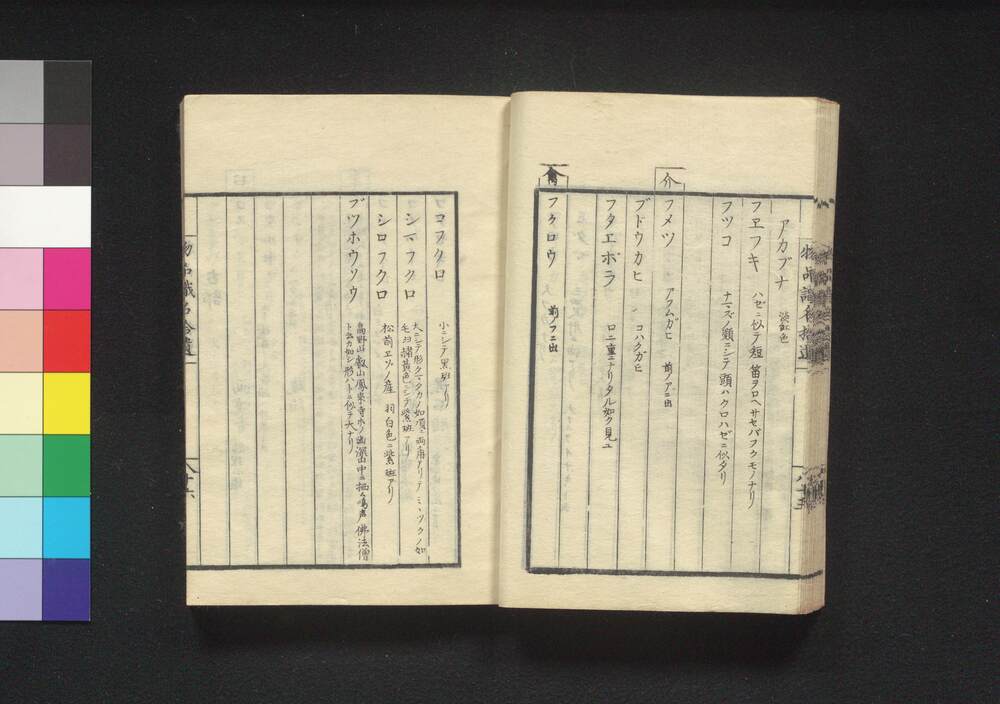 物品識名拾遺
アカブナ 淡紅色
フヱフキ ハゼニ似テ短 笛ヲ口ヘサセバフクモノナリ
フツコ ナマズノ類ニシテ 頭ハクロハゼニ似タリ
介
フメツ アフムガヒ 前ノアニ出
ブドウカヒ コハクガヒ
フタエボラ 口二重ニナリタル如ク見ユ
禽
フクロウ 前ノフニ出
八十五
コフクロ 小ニシテ黒斑アリ
シマフクロ 大ニシテ形クマタカノ如 頂ニ両角アリテミヽツクノ如
毛羽赭黄色ニシテ紫斑アリ
シロフクロ 松前ヱゾノ産 羽白色ニ紫斑アリ
ブツホウソウ 高野山 叡山 鳳来寺ホノ幽深山中ニ栖ム鳴声佛法僧
ト云カ如シ形ハトニ似テ大ナリ
物品識名拾遺
八十六